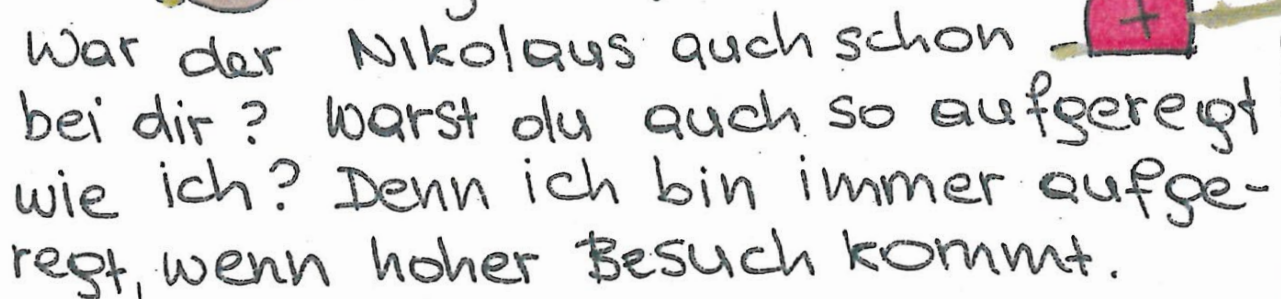 War der Nikolaus auch schon
bei dir? Warst du auch so aufgeregt
wie ich? Denn ich bin immer aufge-
regt, wenn hoher Besuch kommt.